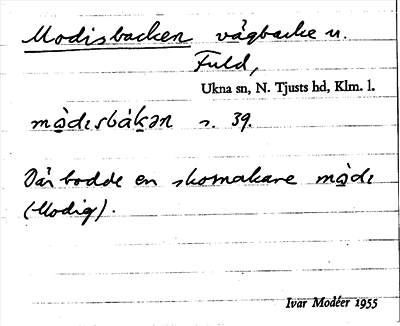 Modisbacken vägbacke n.
Fuld,
Ukna sn, N. Tjusts hd, Klm. l.
mọ̀dɩsbákən s. 39.
Där bodde en skomakare mọ̀dɩ
(Modig).
Ivar Modéer 1955